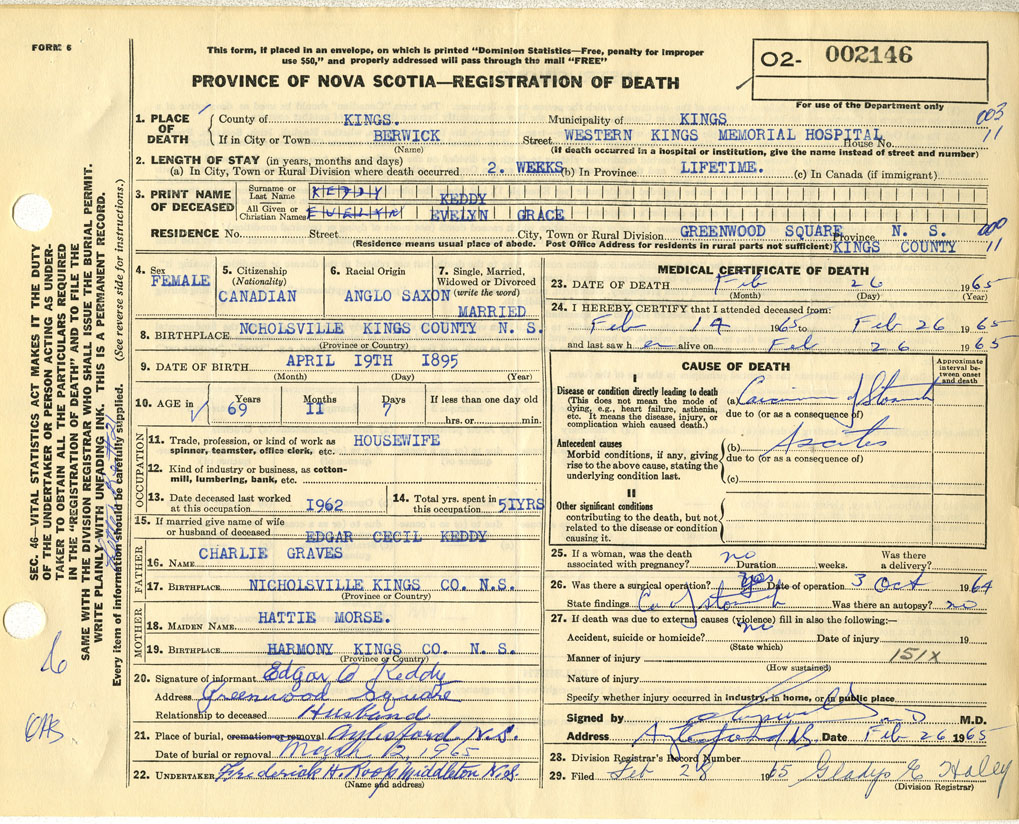 FORM 6
This form, if placed in an envelope, on which is printed "Dominion Statistics—Free, penalty for improper
use $50," and properly addressed will pass through the mail "FREE"
PROVINCE OF NOVA SCOTIA—REGISTRATION OF DEATH
O2- 002146
For use of the Department only
003
11
1. PLACE OF DEATH
County of KINGS. Municipality of KINGS
If in City or Town BERWICK Street WESTERN KINGS MEMORIAL HOSPITAL House No.
(Name) (If death occurred in a hospital or institution, give the name instead of street and number)
2. LENGTH OF STAY (in years, months and days)
(a) In City, Town or Rural Division where death occurred 2. WEEKS (b) In Province LIFETIME. (c) In Canada (if immigrant)
3. PRINT NAME OF DECEASED
Surname or Last Name KEDDY KEDDY
All Given or Christian Names EVELYN EVELYN GRACE
RESIDENCE No. Street City, Town or Rural Division GREENWOOD SQUARE Province N. S. 000
(Residence means usual place of abode. Post Office Address for residents in rural parts not sufficient) KINGS COUNTY 11
4. Sex FEMALE
5. Citizenship (Nationality) CANADIAN
6. Racial Origin ANGLO SAXON
7. Single, Married, Widowed or Divorced (write the word) MARRIED
8. BIRTHPLACE NCHOLSVILLE KINGS COUNTY N. S.
(Province or County)
9. DATE OF BIRTH APRIL 19TH 1895
(Month) (Day) (Year)
10. AGE in Years 69 Months 11 Days 7 If less than one day old
hrs. or min.
OCCUPATION
11. Trade, profession, or kind of work as spinner, teamster, office clerk, etc. HOUSEWIFE
12. Kind of industry or business, as cotton-mill, lumbering, bank, etc.
13. Date deceased last worked at this occupation 1962
14. Total yrs. spent in this occupation 51YRS
15. If married give name of wife or husband of deceased EDGAR CECIL KEDDY
FATHER
16. NAME CHARLIE GRAVES
17. BIRTHPLACE NICHOLSVILLE KINGS CO. N.S.
(Province or County)
MOTHER
18. MAIDEN NAME HATTIE MORSE.
19. BIRTHPLACE HARMONY KINGS CO. N. S.
(Province or County)
20. Signature of informant Edgar C Keddy
Address Greenwood Square
Relationship to deceased Husband
21. Place of burial, cremation or removal Aylesford N.S.
Date of burial or removal March 1965
22. UNDERTAKER Frederick H. Roop Middleton N.S.
(Name and address)
MEDICAL CERTIFICATE OF DEATH
23. DATE OF DEATH Feb 26 1965
(Month) (Day) (Year)
24. I HEREBY CERTIFY that I attended deceased from:
Feb 14 1965 to Feb 26 1965
and last saw h er alive on Feb 26 1965
CAUSE OF DEATH
Approximate interval between onset and death
I
Disease or condition directly leading to death
(This does not mean the mode of dying, e.g., heart failure, asthenia, etc. It means the disease, injury, or complication which caused death.)
(a) Carcinoma of Stomach
due to (or as a consequence of)
Antecedent causes
Morbid conditions, if any, giving rise to the above cause, stating the underlying condition last.
(b) Ascites
due to (or as a consequence of)
(c)
II
Other significant conditions
contributing to the death, but not related to the disease or condition causing it.
25. If a woman, was the death associated with pregnancy? no Duration weeks. Was there a delivery?
26. Was there a surgical operation? yes Date of operation 3 Oct 1964
State findings Ca of stomach Was there an autopsy? no
27. If death was due to external causes (violence) fill in also the following:—
no
Accident, suicide or homicide? Date of injury 19
(State which)
Manner of injury 151X
(How sustained)
Nature of injury
Specify whether injury occurred in industry, in home, or in public place
Signed by M.D.
Address Aylesford N.S. Date Feb 26 1965
28. Division Registrar's Record Number
29. Filed Feb 28 1965 Gladys E Haley
(Division Registrar)
SEC. 46—VITAL STATISTICS ACT MAKES IT THE DUTY
OF THE UNDERTAKER OR PERSON ACTING AS UNDER-
TAKER TO OBTAIN ALL THE PARTICULARS REQUIRED
IN THE "REGISTRATION OF DEATH" AND TO FILE THE
SAME WITH THE DIVISION REGISTRAR WHO SHALL ISSUE THE BURIAL PERMIT.
WRITE PLAINLY WITH UNFADING INK. THIS IS A PERMANENT RECORD.
Every item of information should be carefully supplied. (See reverse side for instructions.)